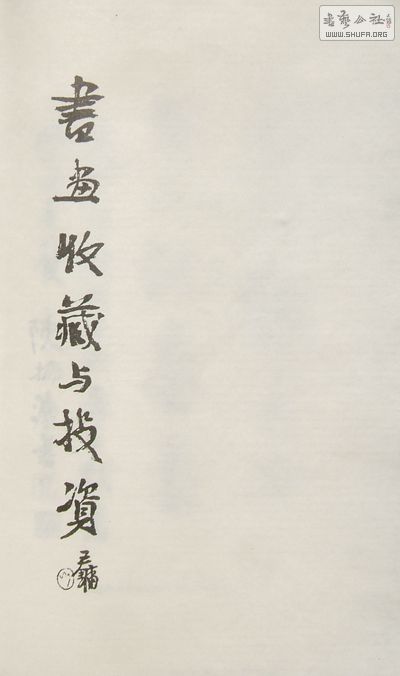 書畫收藏与投資
書藝公社
WWW.SHUFA.ORG